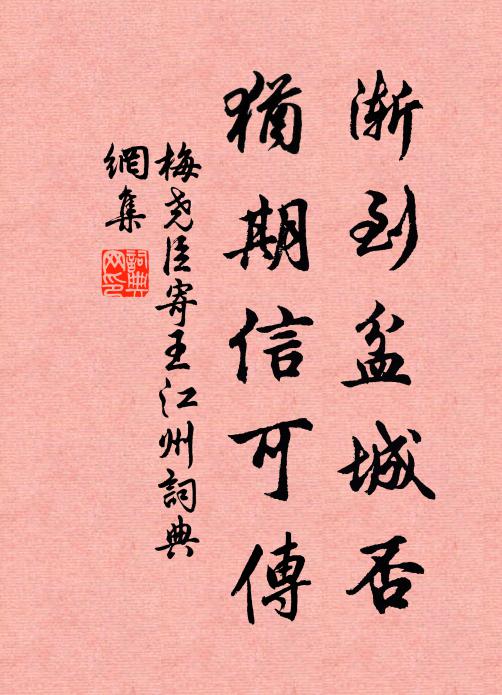 渐到盆城否
猶期信可傳
梅尧臣寄王江州詞典
網集
詞典
网印